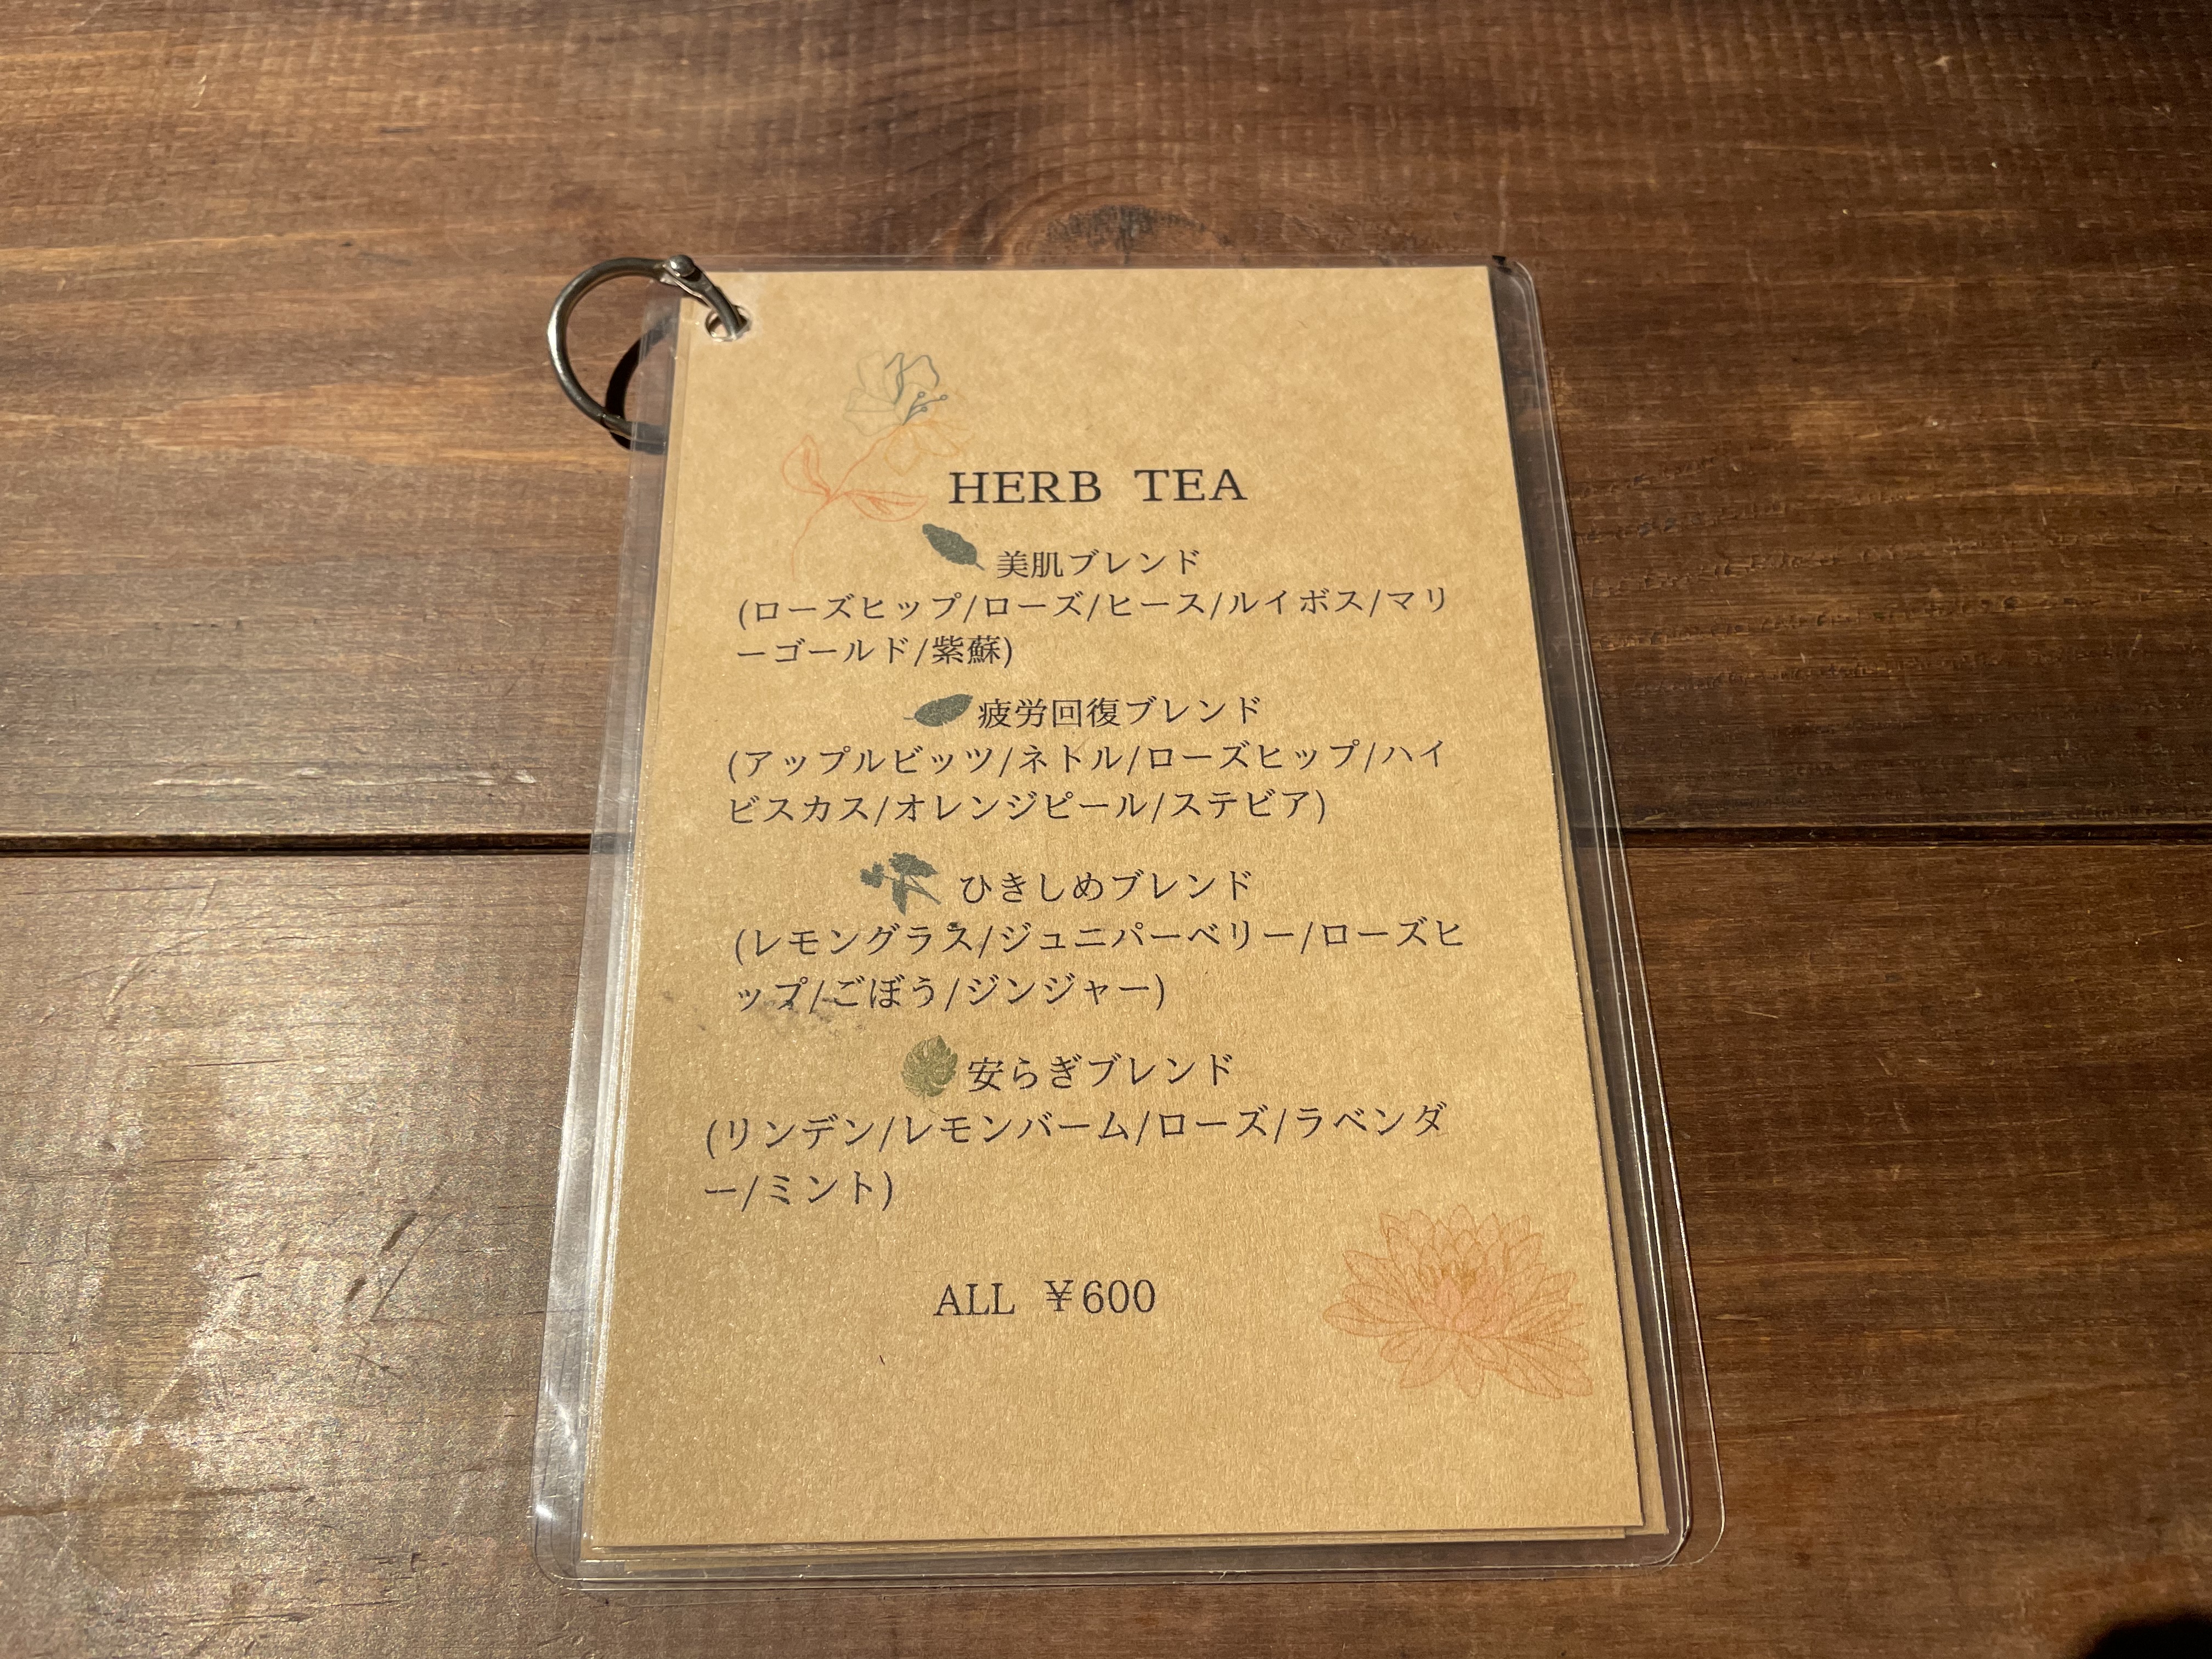 HERB TEA
美肌ブレンド
(ローズヒップ/ローズ/ヒース/ルイボス/マリ
ーゴールド/紫蘇)
疲労回復ブレンド
(アップルビッツ/ネトル/ローズヒップ/ハイ
ビスカス/オレンジピール/ステビア)
ひきしめブレンド
(レモングラス/ジュニパーベリー/ローズヒ
ップ/ごぼう/ジンジャー)
安らぎブレンド
(リンデン/レモンバーム/ローズ/ラベンダ
ー/ミント)
ALL ¥600